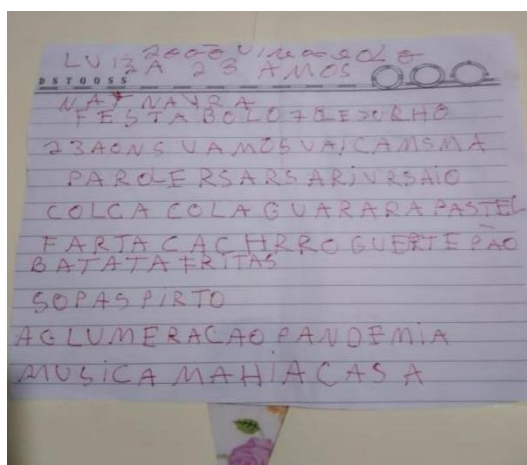 LUIZA 23 AMOS
D S T Q Q S S
NAYNAYRA
FESTA BOLO 7 DE JURHO
23 AONS VAMOS VAI CAMSMA
PAROLERSARSARIVRSAIO
COLCA COLA GUARARA PASTEL
FARTA CACHRRO GUERTE PÃO
BATATA FRITAS
SOPAS PIRTO
AGLUMERACAO PANDEMIA
MUSICA MAHIA CASA